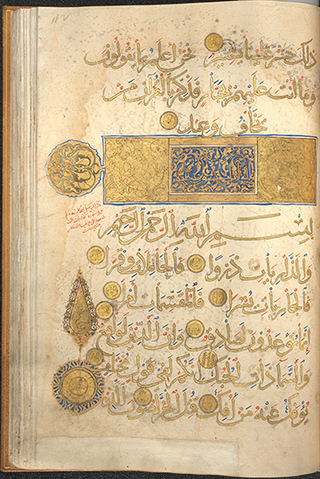 ذلك حشر علينا يسير نحن اعلم بما يقولون
وما انت عليهم بجبار فذكر بالقران من
يخاف وعيد
بسم الله الرحمن الرحيم
والذاريات ذروا فالحاملات وقرا
فالجاريات يسرا فالمقسمات امرا
انما توعدون لصادق وان الدين لواقع
والسماء ذات الحبك انكم لفي قول مختلف
يوفك عنه من افك قتل الخراصون الذين